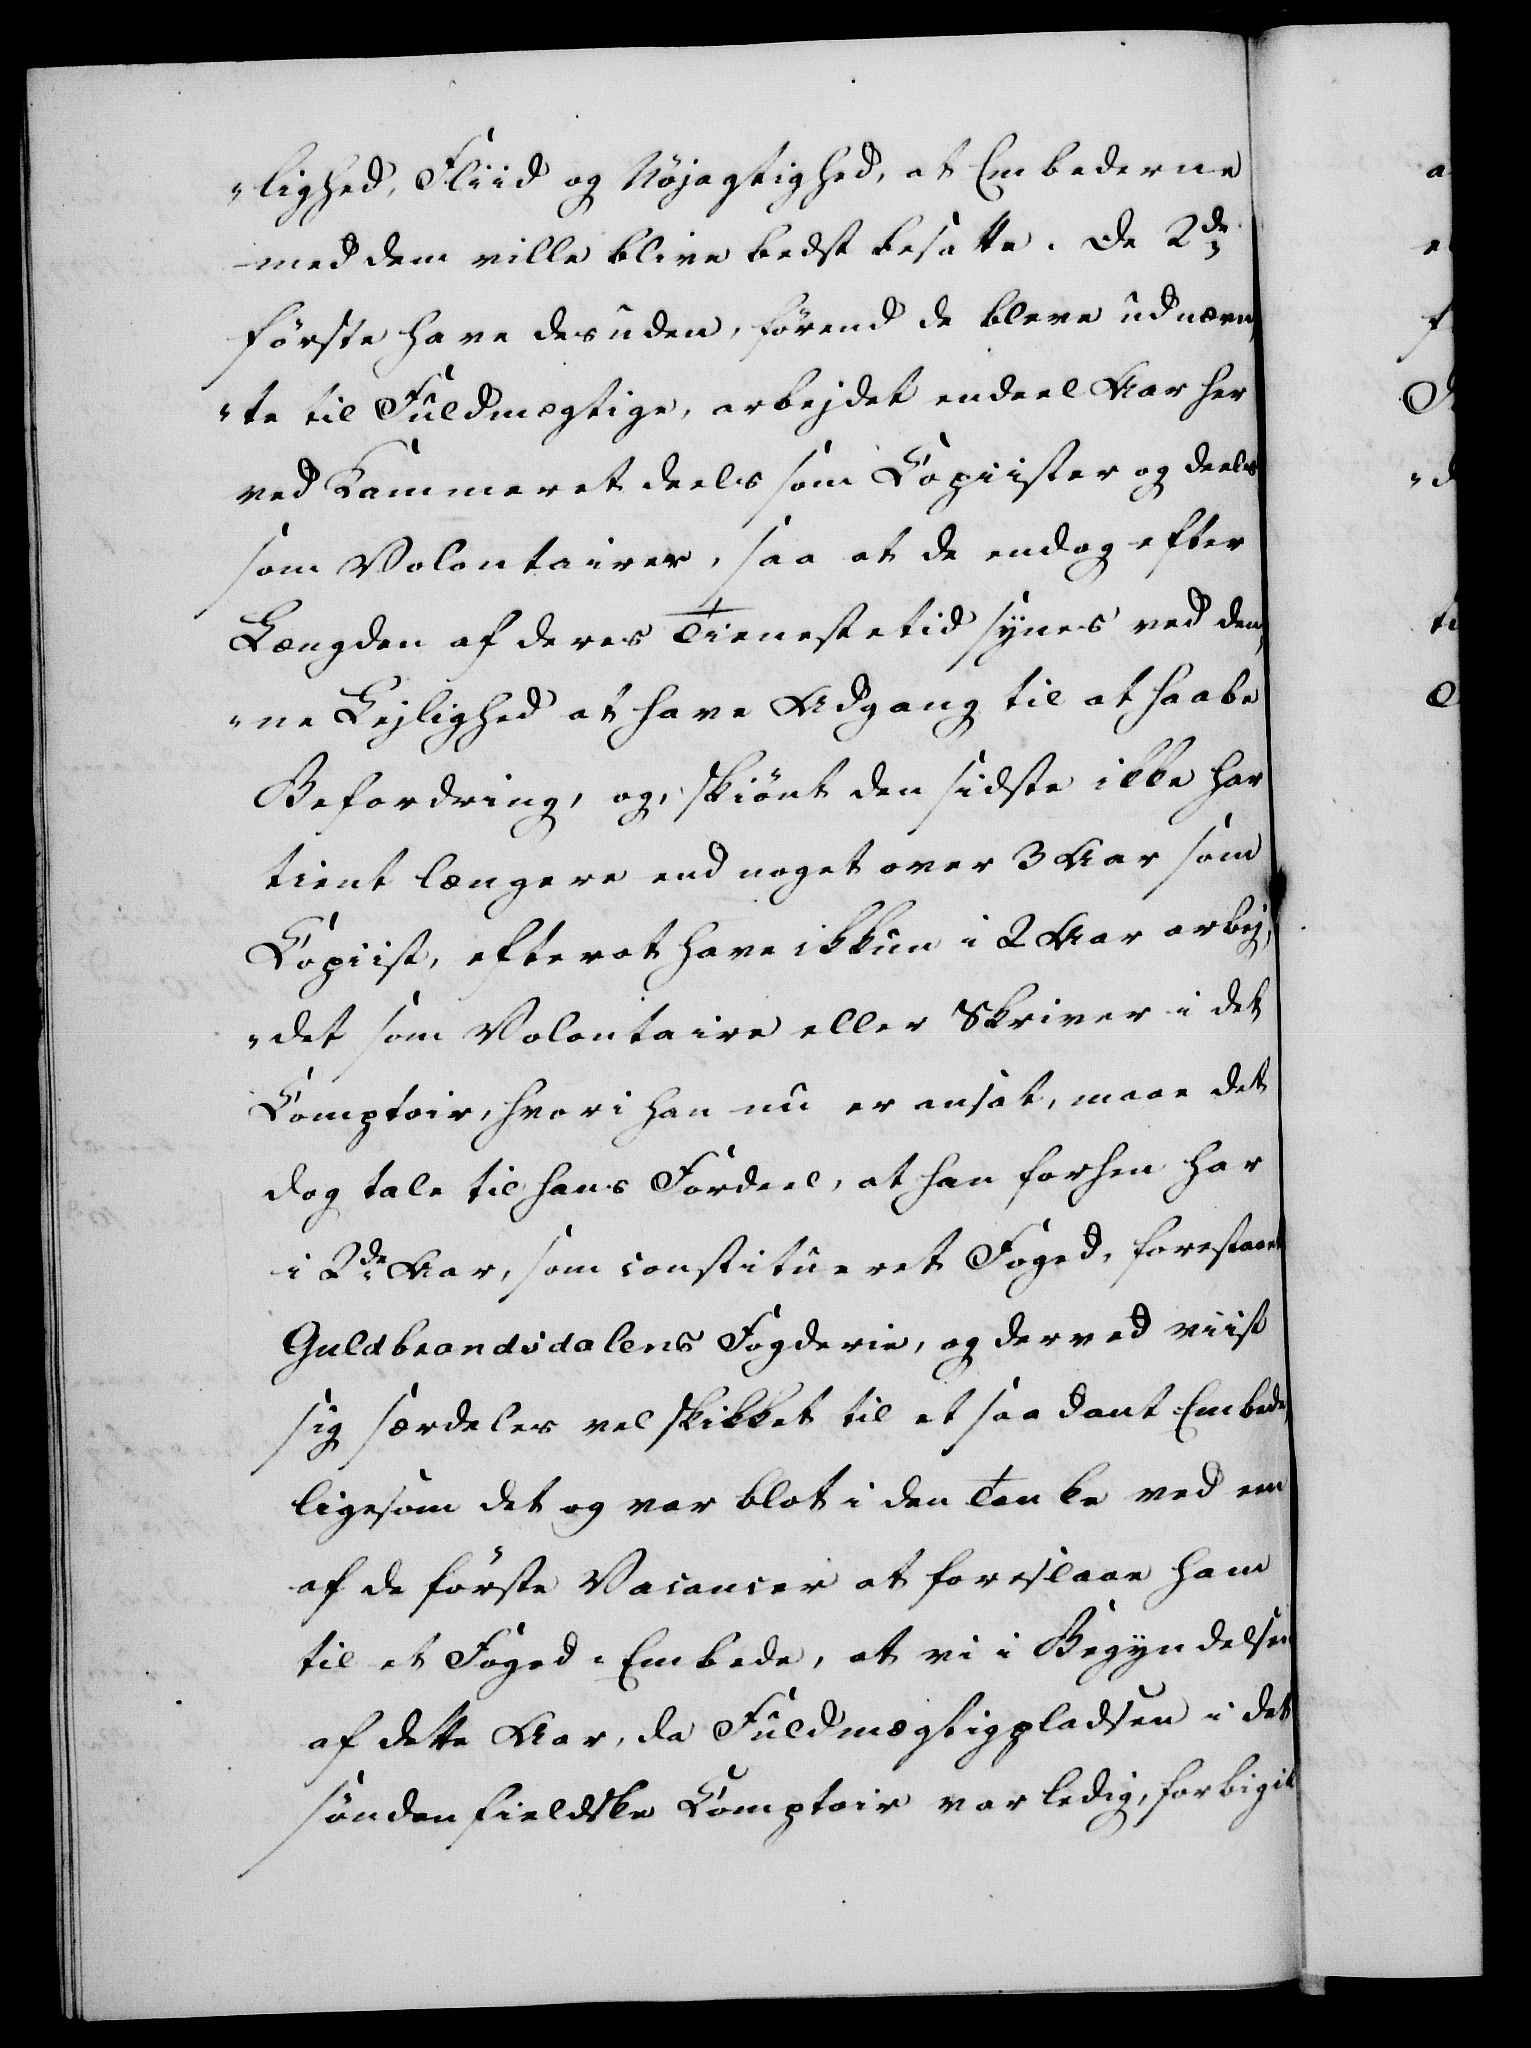 "lighed, Fliid og Nöjagtighed, at Embederne
med dem ville blive bedst besatte. De 2de
förste have desuden, förend de bleve udnævn,
"te til Fuldmægtige, arbejdet endeel Aar her
ved Kammeret deels som Copiister og deels
som Volontairer, saa at de endog efter
Længden af deres Tienestetid synes ved den,
"ne Lejlighed at have Adgang til at haabe
Befordring, og, skiönt den sidste ikke har
tient længere end noget over 3 Aar som
Copiist, efter at have ikkun i 2 Aar arbej,
"det som Volontaire eller Skriver i det
Comptoir, hvori han nu er ansat, maae det
dog tale til hans Fordeel, at han forhen har
i 2de Aar, som constitueret Foged, forestaaet
Guldbrandsdalens Fogderie, og derved viist
sig særdeles vel skikket til et saadant Embede,
ligesom det og var blot i den Tanke ved en
af de förste Vacancer at foreslaae ham
til et Foged-Embede, at vi i Begyndelsen
af dette Aar, da Fuldmægtigpladsen i det
söndenfieldske Comptoir var ledig, forbigik